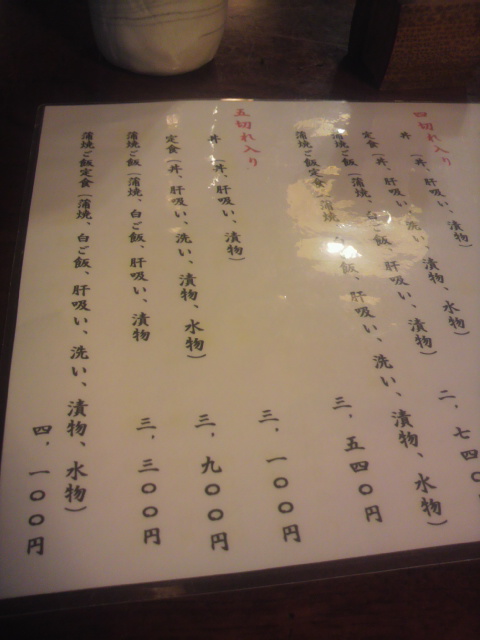 四切れ入り
丼 (丼、肝吸い、漬物)
定食(丼、肝吸い、洗い、漬物、水物)
蒲焼ご飯(蒲焼、白ご飯、肝吸い、漬物) 二、七四〇
蒲焼ご飯定食(蒲焼、白ご飯、肝吸い、洗い、漬物、水物) 三、五四〇円
五切れ入り
丼 (丼、肝吸い、漬物) 三、一〇〇円
定食(丼、肝吸い、洗い、漬物、水物) 三、九〇〇円
蒲焼ご飯(蒲焼、白ご飯、肝吸い、漬物 三、三〇〇円
蒲焼ご飯定食(蒲焼、白ご飯、肝吸い、洗い、漬物、水物) 四、一〇〇円